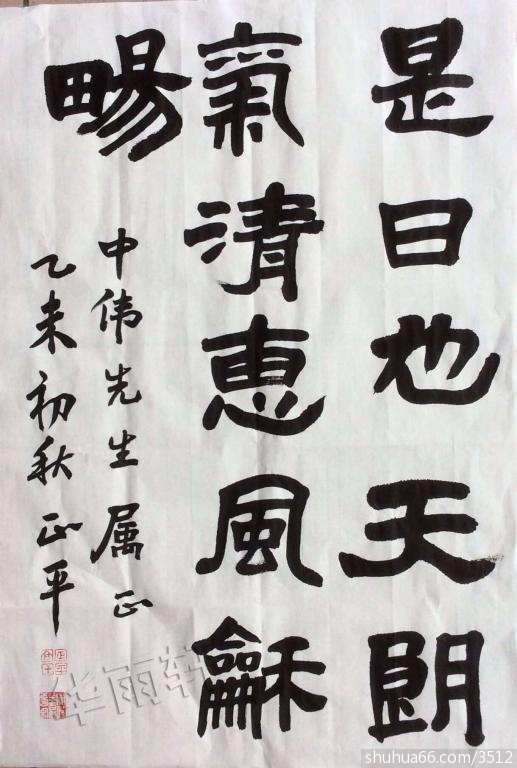 是日也天朗
氣清惠風龢
畼
中伟先生属正
乙未初秋正平
华雨轩
shuhua66.com/3512